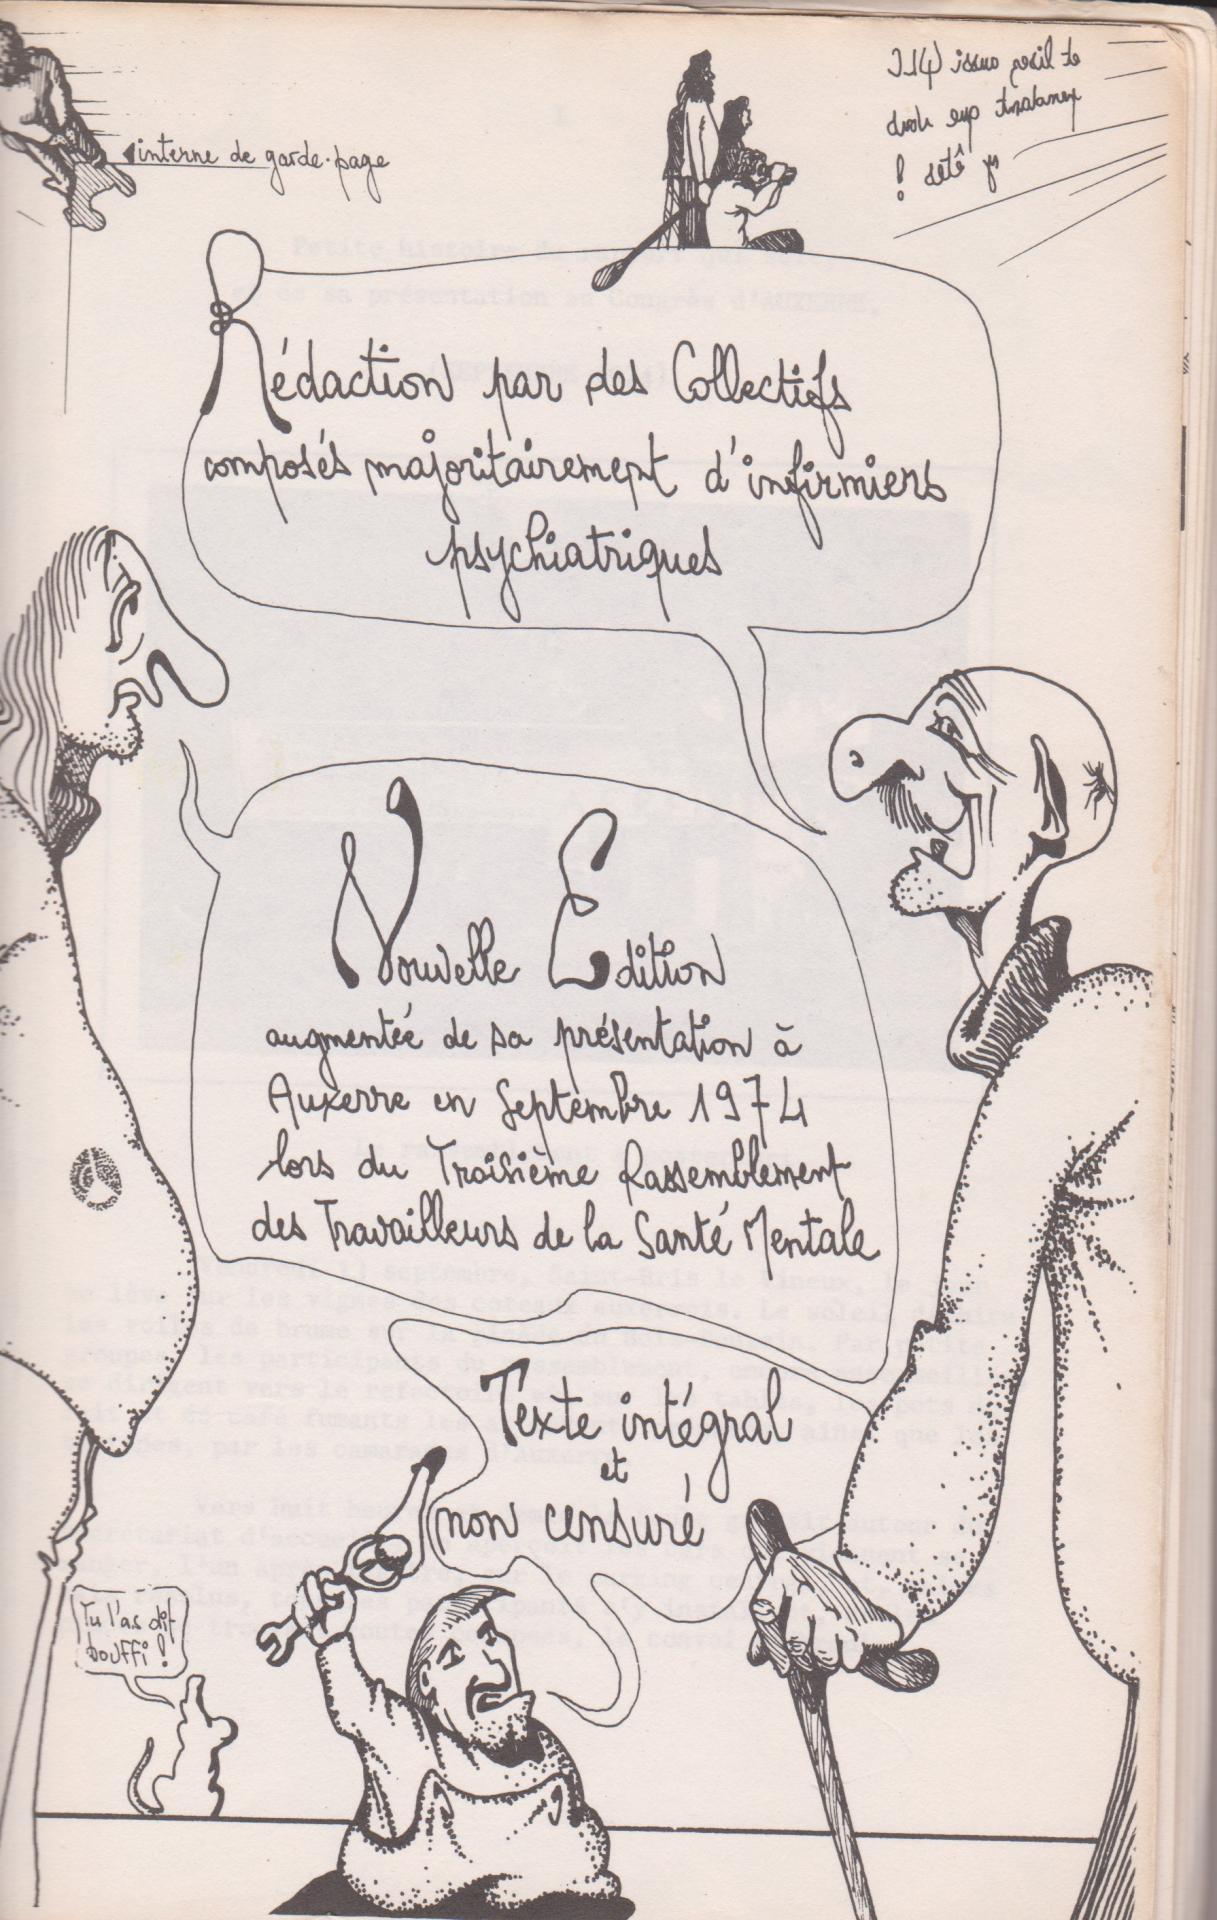 et lisez aussi
pendant que vous
y êtes !
interne de garde-page
Rédaction par des Collectifs
composés majoritairement d'infirmiers
psychiatriques
Nouvelle Edition
augmentée de sa présentation à
Auxerre en Septembre 1974
lors du Troisième Rassemblement
des Travailleurs de la Santé Mentale
Texte intégral
et
non censuré
Tu l'as dit
bouffi !